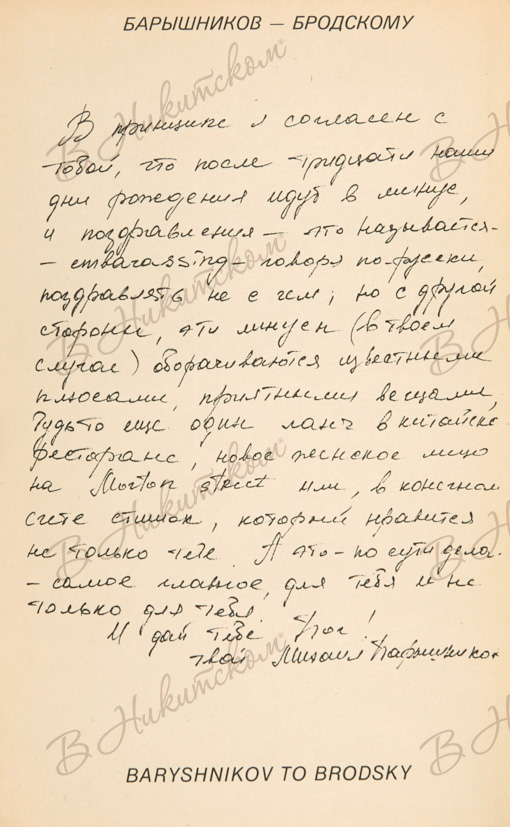 БАРЫШНИКОВ — БРОДСКОМУ
В принципе я согласен с
тобой, что после тридцати наши
дни рождения идут в минус,
и поздравления — что называется —
— embarassing — говоря по-русски,
поздравлять не с чем; но с другой
стороны, эти минусы (в твоем
случае) оборачиваются известными
плюсами, приятными вещами,
будь то еще один ланч в китайском
ресторане, новое женское лицо
на Morton street или, в конечном
счете стишок, который нравится
не только тебе. А это — по сути дела —
— самое главное, для тебя и не
только для тебя.
И дай тебе Бог!
твой Михаил Барышников
BARYSHNIKOV TO BRODSKY
В Никитском®